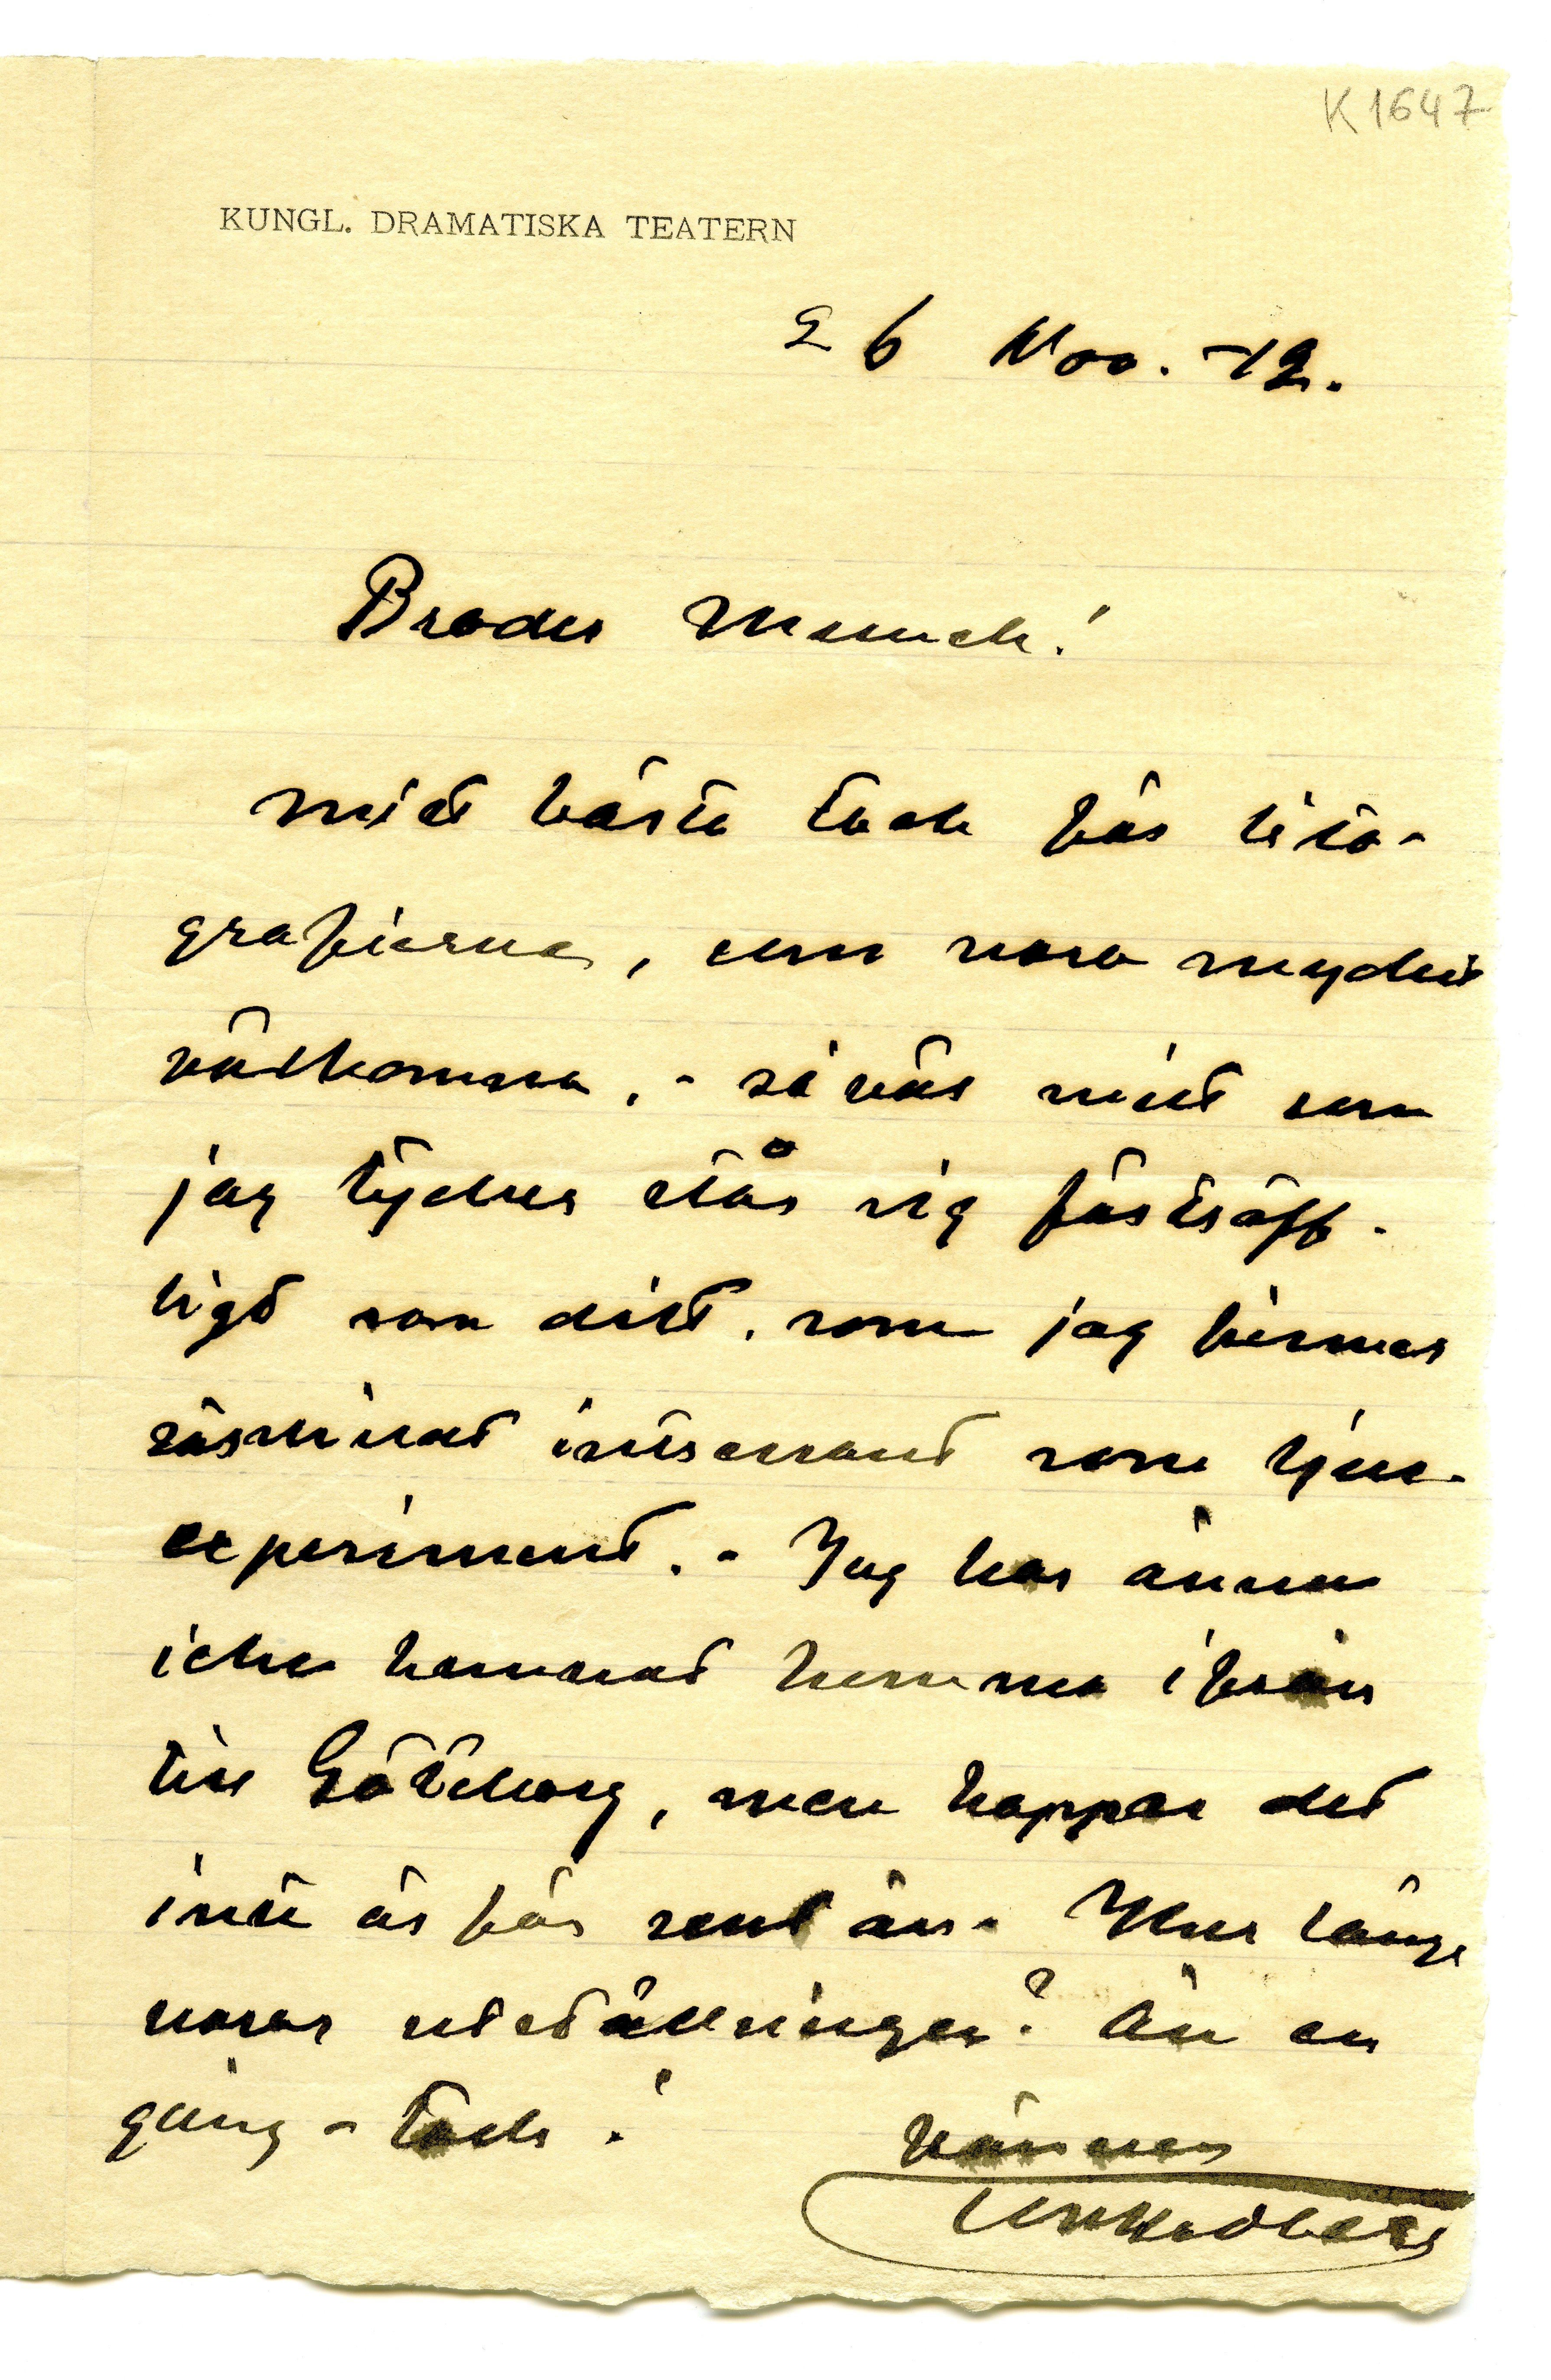 K 1647
KUNGL. DRAMATISKA TEATERN
26 Nov. -12.
Broder Munch!
Mitt bästa tack för lito-
grafierna, som voro mycket
välkomna. - Såväl mitt som
jag tycker står sig förträff-
ligt som ditt, som jag finner
särskildt intressant som ljus-
experiment. - Jag har ännu
icke kommit hemma ifrån
till Göteborg, men hoppas det
inte är för sent än. Hur länge
varar utställningen? Än en
gång - tack!
Vännen